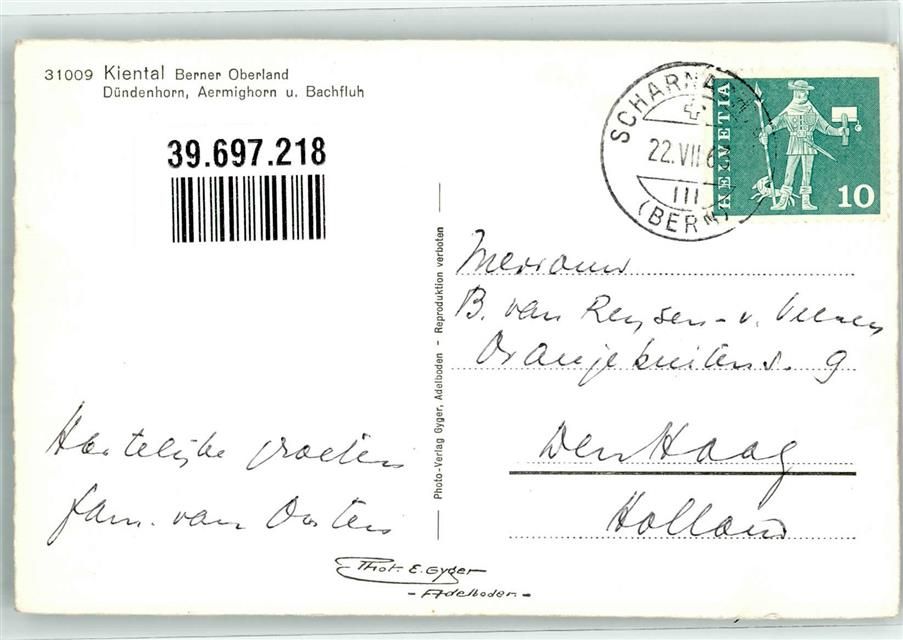 31009 Kiental Berner Oberland
Dündenhorn, Aermighorn u. Bachfluh
39.697.218
SCHARNA
22.VII 6
III
(BERN)
HELVETIA
10
Photo-Verlag Gyger, Adelboden - Reproduktion verboten
B. van
9
Den Haag
Holland
Hartelijke groeten
fam. van Oosten
Phot. E. Gyger
- Adelboden -